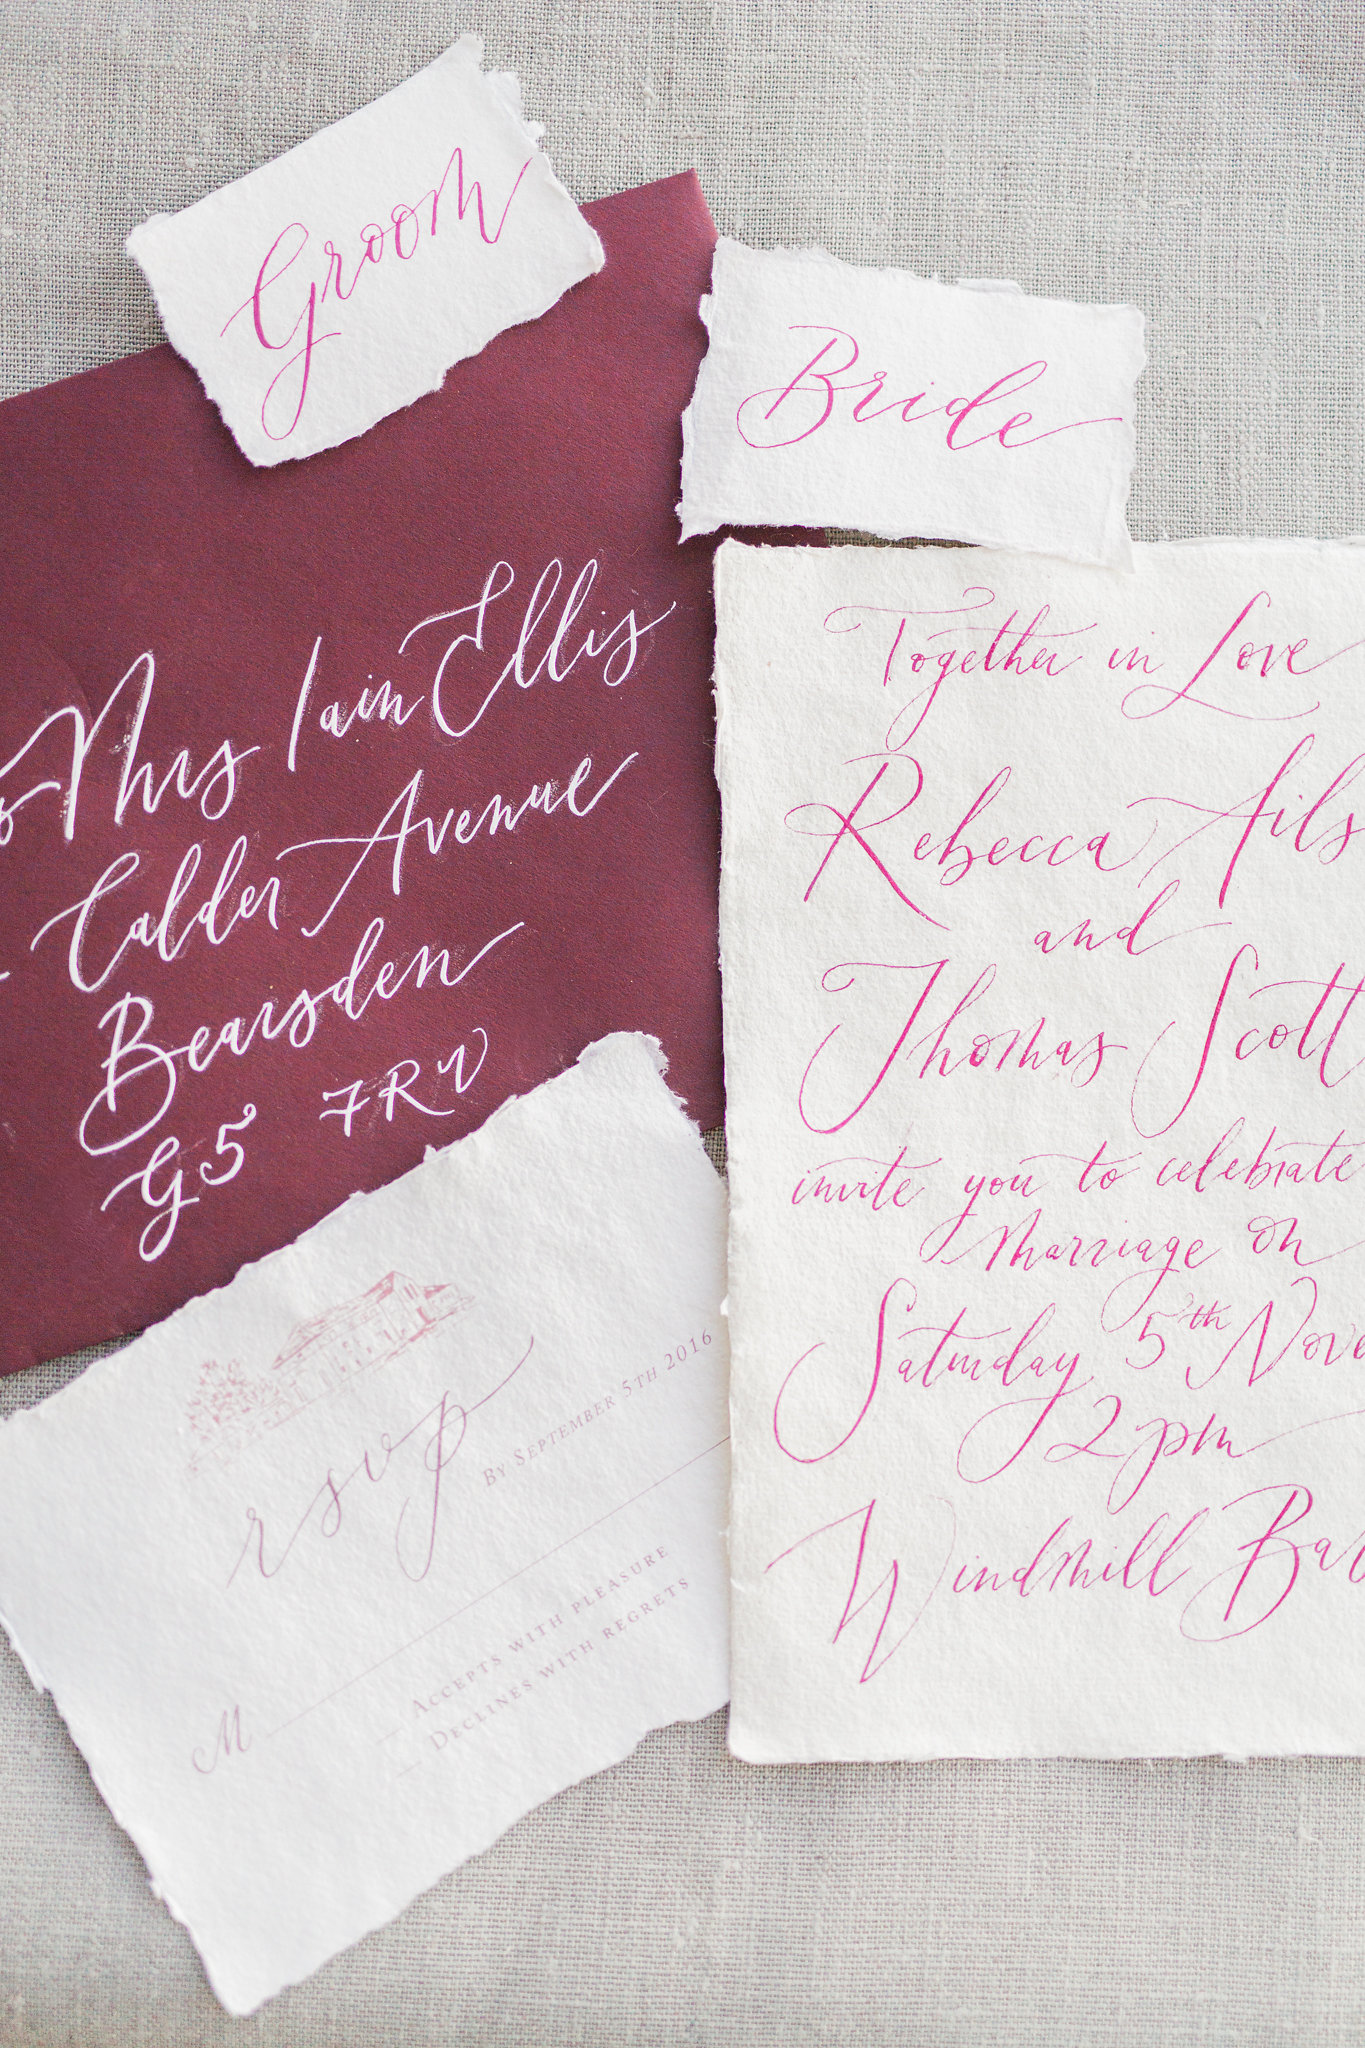 Groom
Bride
Mrs Iain Ellis
Calder Avenue
Bearsden
G5 7RV
Together in Love
Rebecca Ails
and
Thomas Scott
invite you to celebrate
marriage on
Saturday 5th Nove
2pm
Windmill Bar
rsvp
By September 5th 2016
M
Accepts with pleasure
Declines with regrets